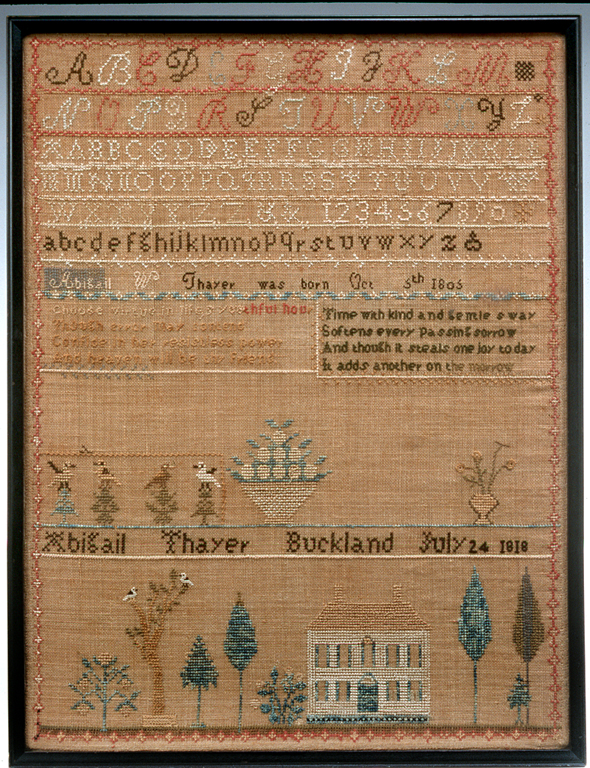 A B C D E F G H I J K L M
N O P Q R S T U V W X Y Z
A A B B C C D D E E F F G G H H I I K K L L
M M N N O O P P Q Q R R S S T T U U V V
W W X X Y Y Z Z & 1 2 3 4 5 6 7 8 9 0
a b c d e f g h i j k l m n o p q r s t u v w x y z &
Abigail W Thayer was born Oct 5th 1805
Choose virtue in life's youthful hour
Though error may contend
Confide in her resistless power
And heaven will be thy friend
Time with kind and gentle sway
Softens every passing sorrow
And though it steals one joy to day
It adds another on the morrow
Abigail Thayer Buckland July 24 1818